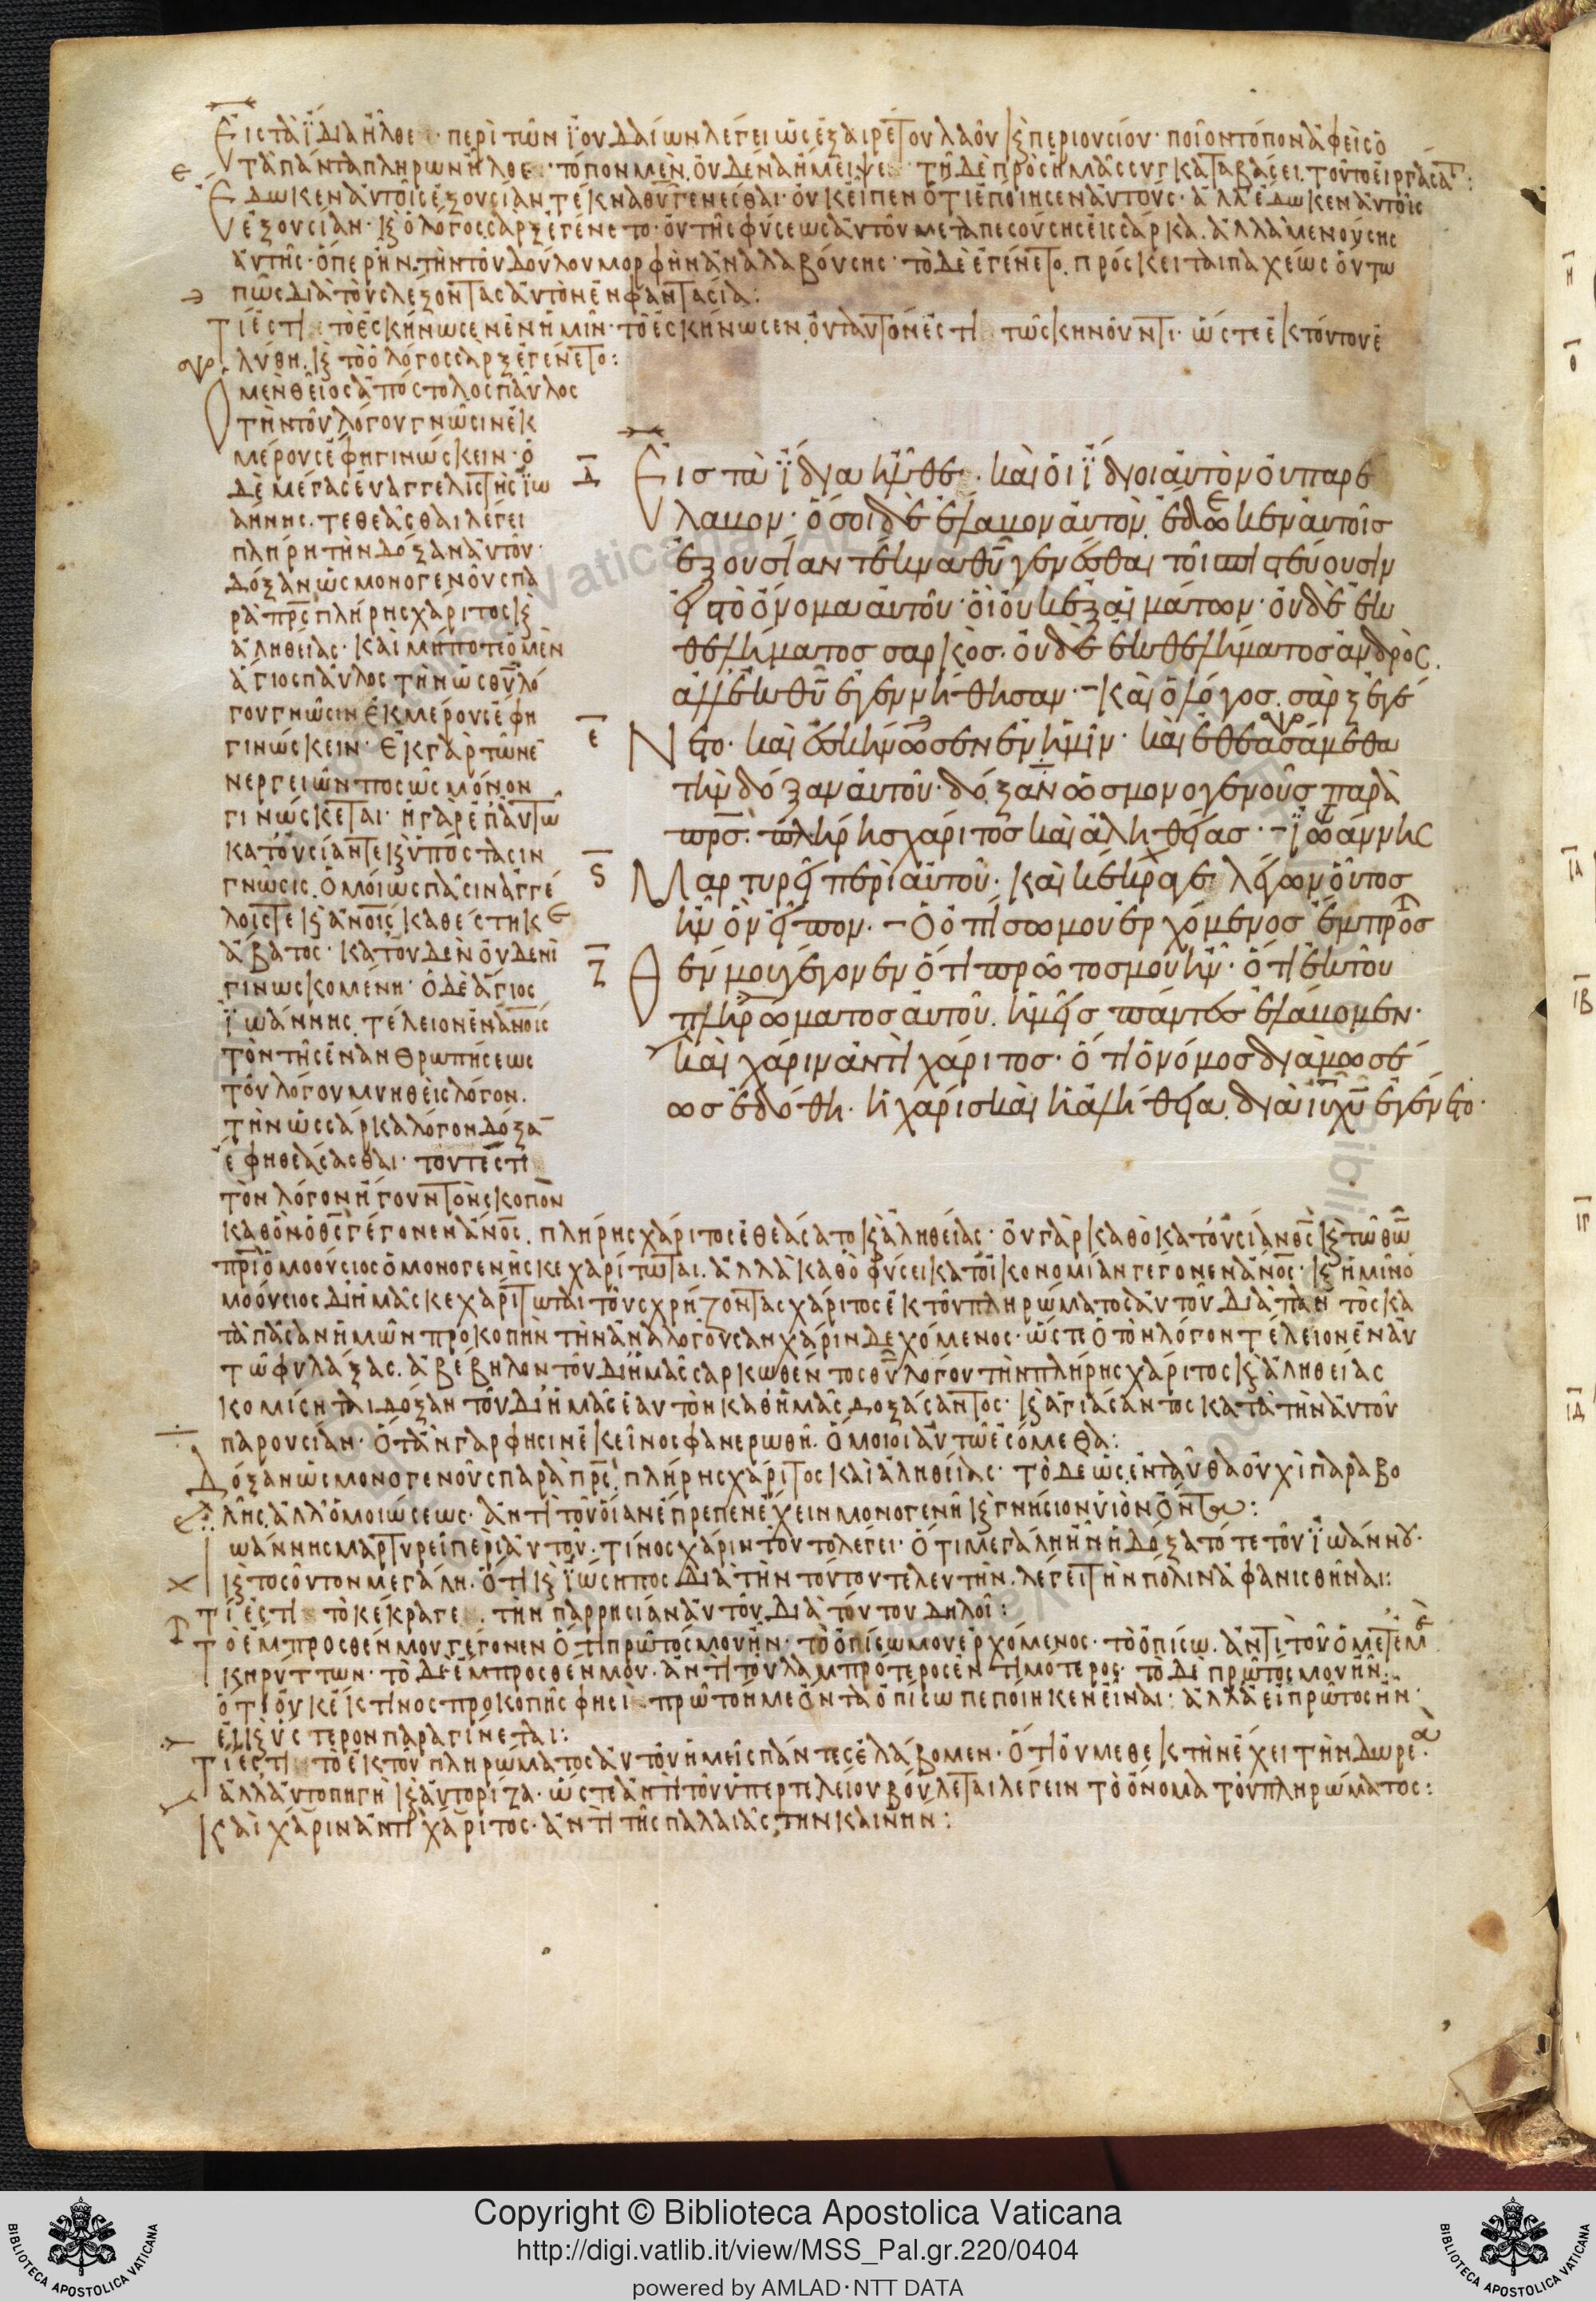 Εἰς τὰ ἴδια ἦλθε· περὶ τῶν ἰουδαίων λέγει ὡς ἐξαιρέτου λαοῦ καὶ περιουσίου· ποῖον τόπον ἀφεὶς ὁ
τὰ πάντα πληρῶν ἦλθε· τόπον μὲν, οὐδένα ἤμειψε· τῆ δὲ πρὸς ἡμᾶς συγκαταβάσει. τοῦτο εἰργάσατο:
Ἔδωκεν αὐτοῖς ἐξουσίαν τέκνα θῦ γενέσθαι· οὐκ εἶπεν ὅτι ἐποίησεν αὐτούς· ἀλλ' ἔδωκεν αὐτοῖς
ἐξουσίαν· καὶ ὁ λόγος σὰρξ ἐγένετο· οὐ τῆς φύσεως αὐτοῦ μεταπεσούσης εἰς σάρκα. ἀλλὰ μενούσης
αὐτῆς· ὅπερ ἦν. τὴν τοῦ δούλου μορφὴν ἀναλαβούσης· τὸ δὲ ἐγένετο, πρόσκειται παχέως οὕτω
πῶς διὰ τοὺς λέξοντας αὐτὸν ἐν φαντασία:
Τί ἐστι τὸ ἐσκήνωσεν ἐν ἡμῖν· τὸ ἐσκήνωσεν, οὐ ταυτόν ἐστι τῶ σκηνοῦντι· ὥστε ἐκ τούτου ἐ
λύθη. καὶ τὸ ὁ λόγος σὰρξ ἐγένετο:
Ὁ μὲν θεῖος ἀπόστολος παῦλος
τὴν τοῦ λόγου γνῶσιν ἐκ
μέρους ἔφη γινώσκειν· ὁ
δὲ μέγας εὐαγγελιστὴς ἰω
άννης. τεθεᾶσθαι λέγει
πλήρη τὴν δόξαν αὐτοῦ·
δόξαν ὡς μονογενοῦς πα
ρὰ πρς πλήρης χάριτος καὶ
ἀληθείας· Καὶ μήποτε ὁ μὲν
ἅγιος παῦλος τὴν ὡς θῦ λό
γου γνῶσιν ἐκ μέρους ἔφη
γινώσκειν· ἐκ γὰρ τῶν ἐ
νεργειῶν ποσῶς μόνον
γινώσκεται· ἡ γὰρ ἐπ' αὐτῶ
κατ' οὐσίαν τε καὶ ὑπόστασιν
γνῶσις. ὁμοίως πᾶσιν ἀγγέ
λοις τε καὶ ἀνοις καθέστηκε
ἄβατος· κατ' οὐδὲν οὐδενὶ
γινωσκομένη· ὁ δὲ ἅγιος
ἰωάννης. τέλειον ἐν ἀνοις
τὸν τῆς ἐνανθρωπήσεως
τοῦ λόγου μυηθεὶς λόγον.
τὴν ὡς σάρκα λόγου δόξα
ἔφη θεάσασθαι· τουτέστι
τὸν λόγον ἤγουν τὸν σκοπὸν
Δ Εἰς τὰ ἴδια ἦλθε· καὶ οἱ ἴδιοι αὐτὸν οὐ παρέ
λαβον· ὅσοι δὲ ἔλαβον αὐτόν, ἔδωκεν αὐτοῖς
ἐξουσίαν τέκνα θῦ γενέσθαι τοῖς πιστεύουσιν
εἰς τὸ ὄνομα αὐτοῦ· οἳ οὐκ ἐξ αἱμάτων· οὐδὲ ἐκ
θελήματος σαρκός· οὐδὲ ἐκ θελήματος ἀνδρὸς.
ἀλλ' ἐκ θῦ ἐγεννήθησαν· Καὶ ὁ λόγος. σὰρξ ἐγέ
ε Νετο· καὶ ἐσκήνωσεν ἐν ἡμῖν· καὶ ἐθεασάμεθα
τὴν δόξαν αὐτοῦ· δόξαν ὡς μονογενοῦς παρὰ
πρς. πλήρης χάριτος καὶ ἀληθείας· Ἰωάννης
ϛ Μαρτυρεῖ περὶ αὐτοῦ· καὶ κέκραγε λέγων οὗτος
ἦν ὃν εἶπον· Ὁ ὀπίσω μου ἐρχόμενος ἔμπροσ
ζ Θέν μου γέγονεν ὅτι πρῶτός μου ἦν· ὅτι ἐκ τοῦ
πληρώματος αὐτοῦ. ἡμεῖς πάντες ἐλάβομεν·
καὶ χάριν ἀντὶ χάριτος· ὅτι ὁ νόμος διὰ μωσέ
ως ἐδόθη· ἡ χάρις καὶ ἡ ἀλήθεια, διὰ ιυ χυ ἐγένετο·
καθ' ὃν ὁ θς γέγονεν ἄνος. πλήρης χάριτος ἐθεάσατο καὶ ἀληθείας· οὐ γὰρ καθὸ κατ' οὐσίαν θς καὶ τῶ θω
πρι ὁμοούσιος ὁ μονογενὴς κεχαρίτωται. ἀλλὰ καθὸ φύσει κατ' οἰκονομίαν γέγονεν ἄνος· καὶ ἡμῖν ὁ
μοούσιος δι' ἡμᾶς κεχαρίτωται τοὺς χρήζοντας χάριτος ἐκ τοῦ πληρώματος αὐτοῦ. διὰ παντὸς κα
τὰ πᾶσαν ἡμῶν προκοπὴν τὴν ἀναλογοῦσαν χάριν δεχόμενος· ὥστε ὁ τὸν λόγον τέλειον ἐν αὐ
τῶ φυλάξας. ἀβέβηλον τοῦ δι' ἡμᾶς σαρκωθέντος θῦ λόγου τὴν πλήρης χάριτος καὶ ἀληθείας
κομίσηται δόξαν τοῦ δι' ἡμᾶς ἑαυτὸν καθ' ἡμᾶς δοξάσαντος· καὶ ἁγιάσαντος κατὰ τὴν αὐτοῦ
παρουσίαν· ὅταν γάρ φησιν ἐκεῖνος φανερωθῆ. ὅμοιοι αὐτῶ ἐσόμεθα:
Δόξαν ὡς μονογενοῦς παρὰ πρς, πλήρης χάριτος καὶ ἀληθείας· τὸ δὲ ὡς, ἐνταῦθα οὐχὶ παραβο
λῆς, ἀλλ' ὁμοιώσεως· ἀντὶ τοῦ οἵαν ἔπρεπεν ἔχειν μονογενῆ καὶ γνήσιον υἱὸν ὄντα:
Ἰωάννης μαρτυρεῖ περὶ αὐτοῦ· τίνος χάριν τοῦτο λέγει· ὅτι μεγάλη ἦν ἡ δόξα τότε τοῦ ἰωάννου·
καὶ τοσοῦτον μεγάλη. ὅτι καὶ ἰώσηπος διὰ τὴν τούτου τελευτὴν. λέγει τὴν πόλιν ἀφανισθῆναι:
Τί ἐστι τὸ κέκραγε. τὴν παρρησίαν αὐτοῦ. διὰ τούτου δηλοῖ:
Τὸ ἔμπροσθέν μου γέγονεν ὅτι πρῶτός μου ἦν· τὸ ὀπίσω μου ἐρχόμενος· τὸ ὀπίσω. ἀντὶ τοῦ ὁ μετ' ἐμὲ
κηρύττων· τὸ δὲ ἔμπροσθέν μου. ἀντὶ τοῦ λαμπρότερος ἐντιμότερος· τὸ δὲ πρῶτός μου ἦν:
ὅτι οὐκ ἔκ τινος προκοπῆς φησὶ πρῶτόν με ὄντα ὀπίσω πεποίηκεν εἶναι· ἀλλὰ εἰ πρῶτος ἦν·
εἰ καὶ ὕστερον παραγίνεται:
Τί ἐστι τὸ ἐκ τοῦ πληρώματος αὐτοῦ ἡμεῖς πάντες ἐλάβομεν· ὅτι οὐ μεθεκτὴν ἔχει τὴν δωρεά·
ἀλλ' αὐτοπηγὴ καὶ αὐτορίζα· ὥστε ἀντὶ τοῦ ὑπερτελείου βούλεται λέγειν τὸ ὄνομα τοῦ πληρώματος:
Καὶ χάριν ἀντὶ χάριτος· ἀντὶ τῆς παλαιᾶς, τὴν καινὴν:
Copyright © Biblioteca Apostolica Vaticana
http://digi.vatlib.it/view/MSS_Pal.gr.220/0404
powered by AMLAD·NTT DATA
BIBLIOTECA APOSTOLICA VATICANA
BIBLIOTECA APOSTOLICA VATICANA